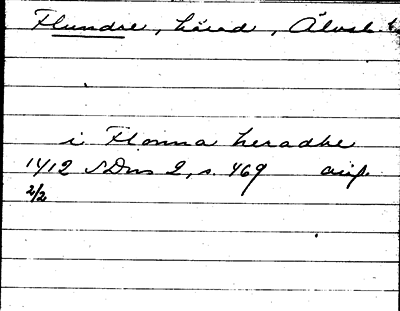 Flundre, härad, Älvsb. l
i Flonna heradhe
1412 SDns 2, s. 469 avs.
2/2